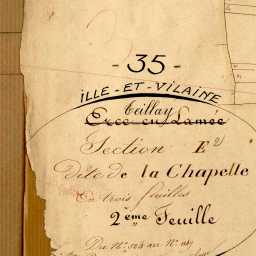 - 35 -
ILLE - ET - VILAINE
Teillay
Ercé en Lamée
Section E2
Dite de la Chapelle
En trois feuilles
2ème Feuille
Du Nº 504 au Nº